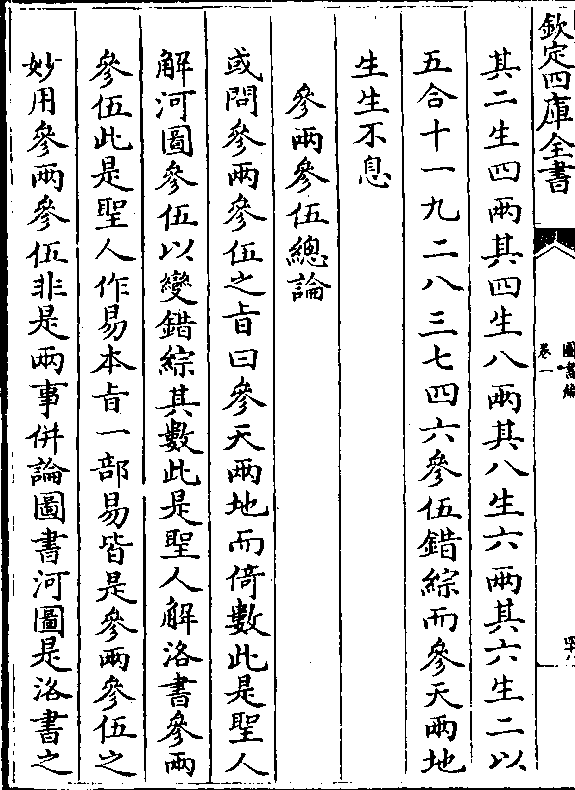 欽定四庫全書
圖書編
卷一
四十八
其二生四兩其四生八兩其八生六兩其六生二以
五合十一九二八三七四六參伍錯綜而參天兩地
生生不息
參兩參伍總論
或問參兩參伍之旨曰參天兩地而倚數此是聖人
解河圖參伍以變錯綜其數此是聖人解洛書參兩
參伍此是聖人作易本旨一部易皆是參兩參伍之
妙用參兩參伍非是兩事併論圖書河圖是洛書之